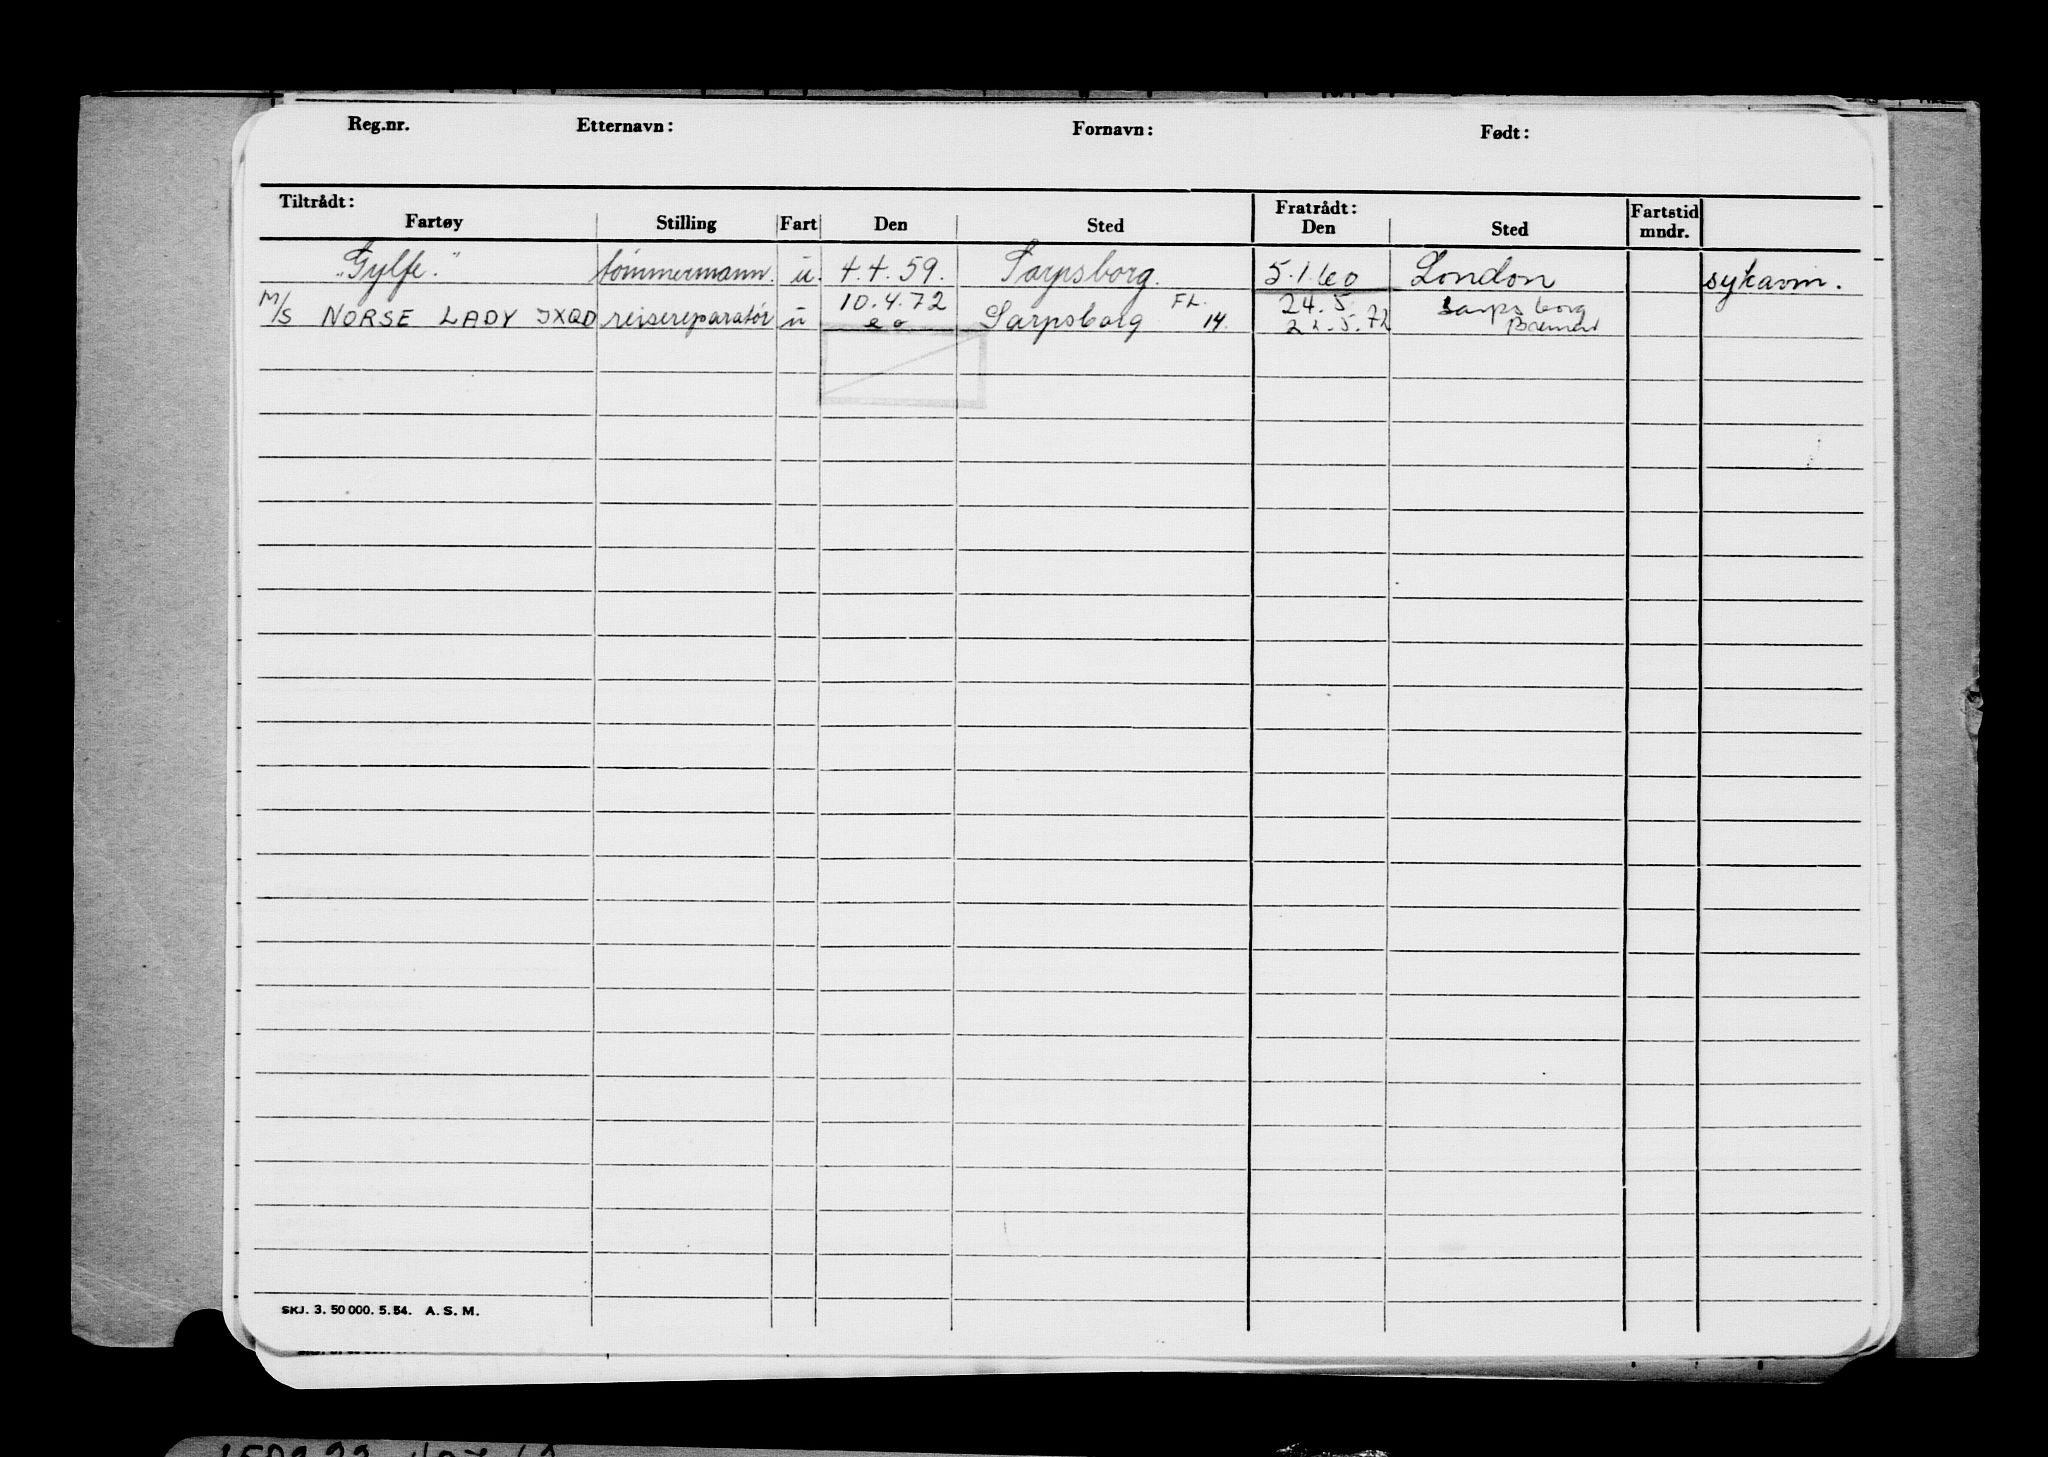 Reg.nr. Etternavn: Fornavn: Født:
Tiltrådt: Fratrådt: Fartstid
Fartøy Stilling Fart Den Sted Den Sted mndr.
"Gylfe." tömmermann. u. 4.4.59. Sarpsborg. 5.1.60 London sykavm.
10.4.72 FL. 24.5 Sarpsborg
M/S NORSE LADY JXQD reisereparatör u Sarpsborg 14. 22.5.72 Bremen
SKJ. 3. 50 000. 5. 54. A. S. M.